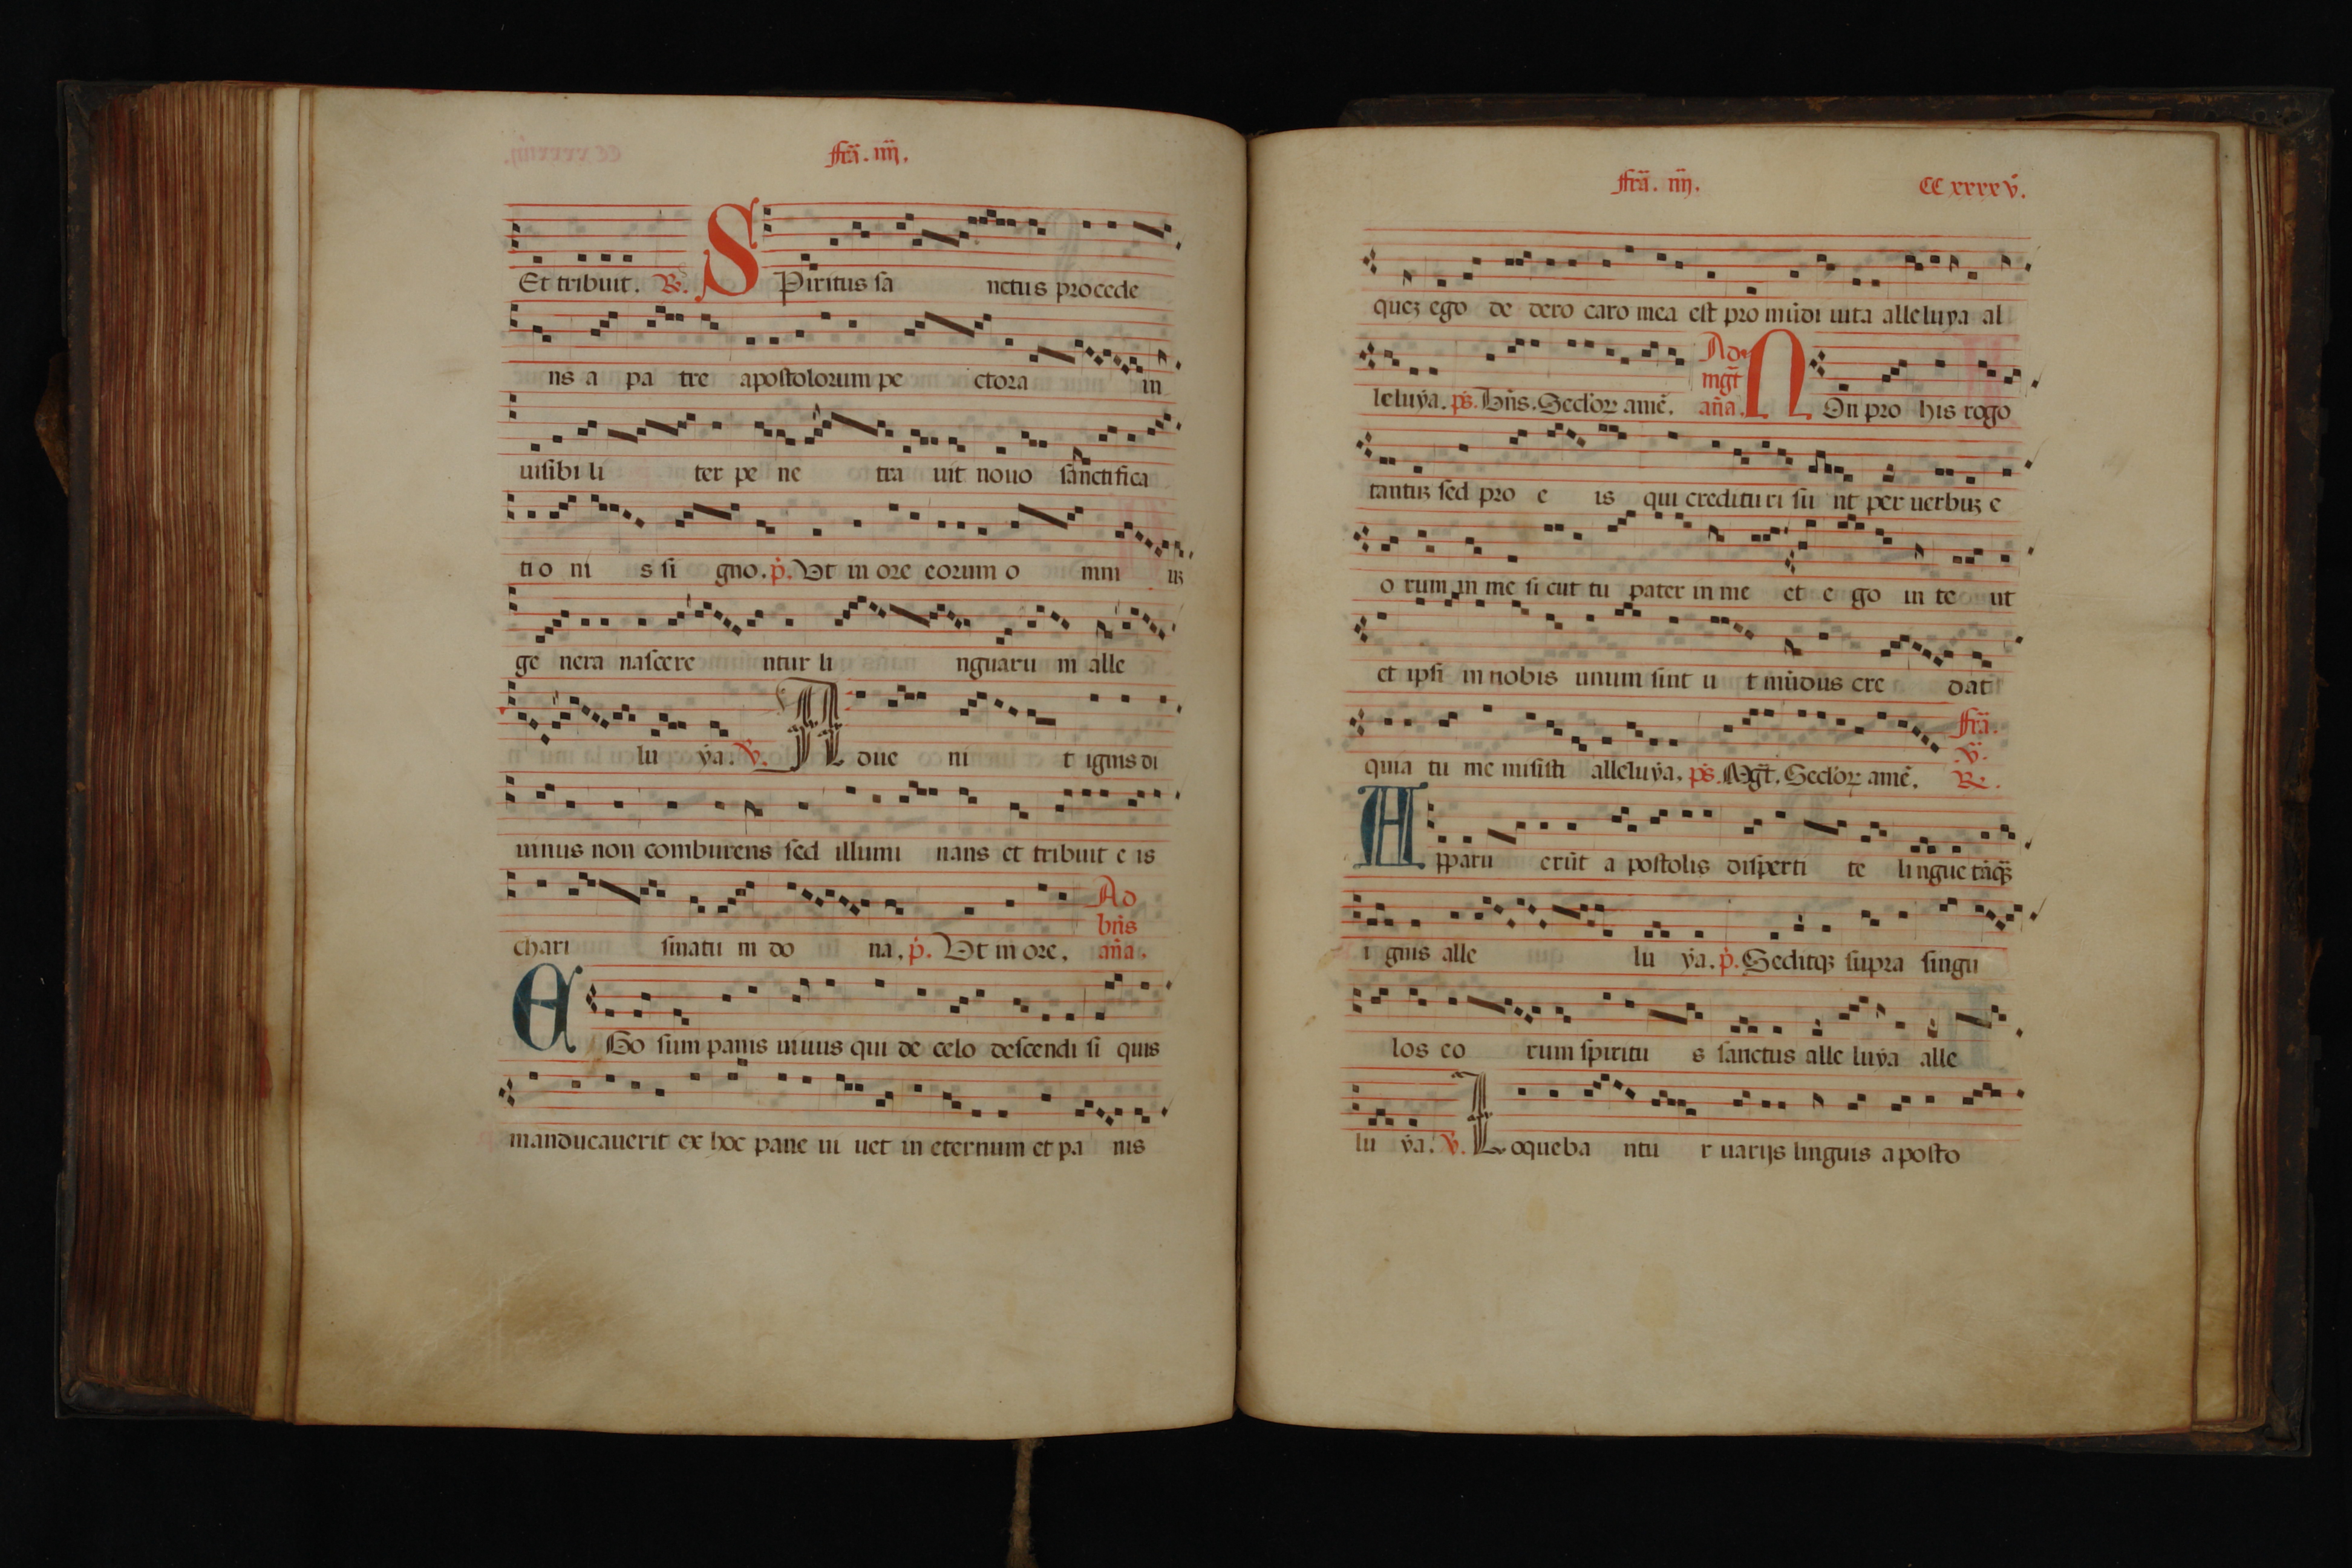 Fr̃a. iiij.
Et tribuit. R. SPiritus sa nctus procede
ns a pa tre apostolorum pe ctora in
uisibi li ter pe ne tra uit nouo sanctifica
ti o ni s si gno. p̃. Vt in ore eorum o mni uꝫ
ge nera nascere ntur li nguaru m alle
lu ẏa. V. A due ni t ignis di
uinus non comburens sed illumi nans et tribuit e is
chari smatu m do na. p̃. Vt in ore. Ad bñs aña.
EGo sum panis uiuus qui de celo descendi si quis
manducauerit ex hoc pane ui uet in eternum et pa nis
Fr̃a. iiij. CC xxxx v.
queꝫ ego de dero caro mea est pro mũdi uita alleluya al
leluẏa. p̃s. Bñs. Seclorꝝ amẽ. Ad mgt̃ aña. NOn pro his rogo
tantuꝫ sed pro e is qui credituri su nt per uerbuꝫ e
o rum in me si cut tu pater in me et e go in te ut
et ipsi in nobis unum sint u t mũdus cre dat
quia tu me misisti alleluẏa. p̃s. Mgt̃. Seclorꝝ amẽ. Fr̃a. V. R.
Apparu erũt a postolis disperti te lingue tãqꝫ
i gnis alle lu ẏa. p̃. Seditqꝫ supra singu
los eo rum spiritu s sanctus alle luẏa alle
lu ẏa. V. Loqueba ntu r uarijs linguis a posto